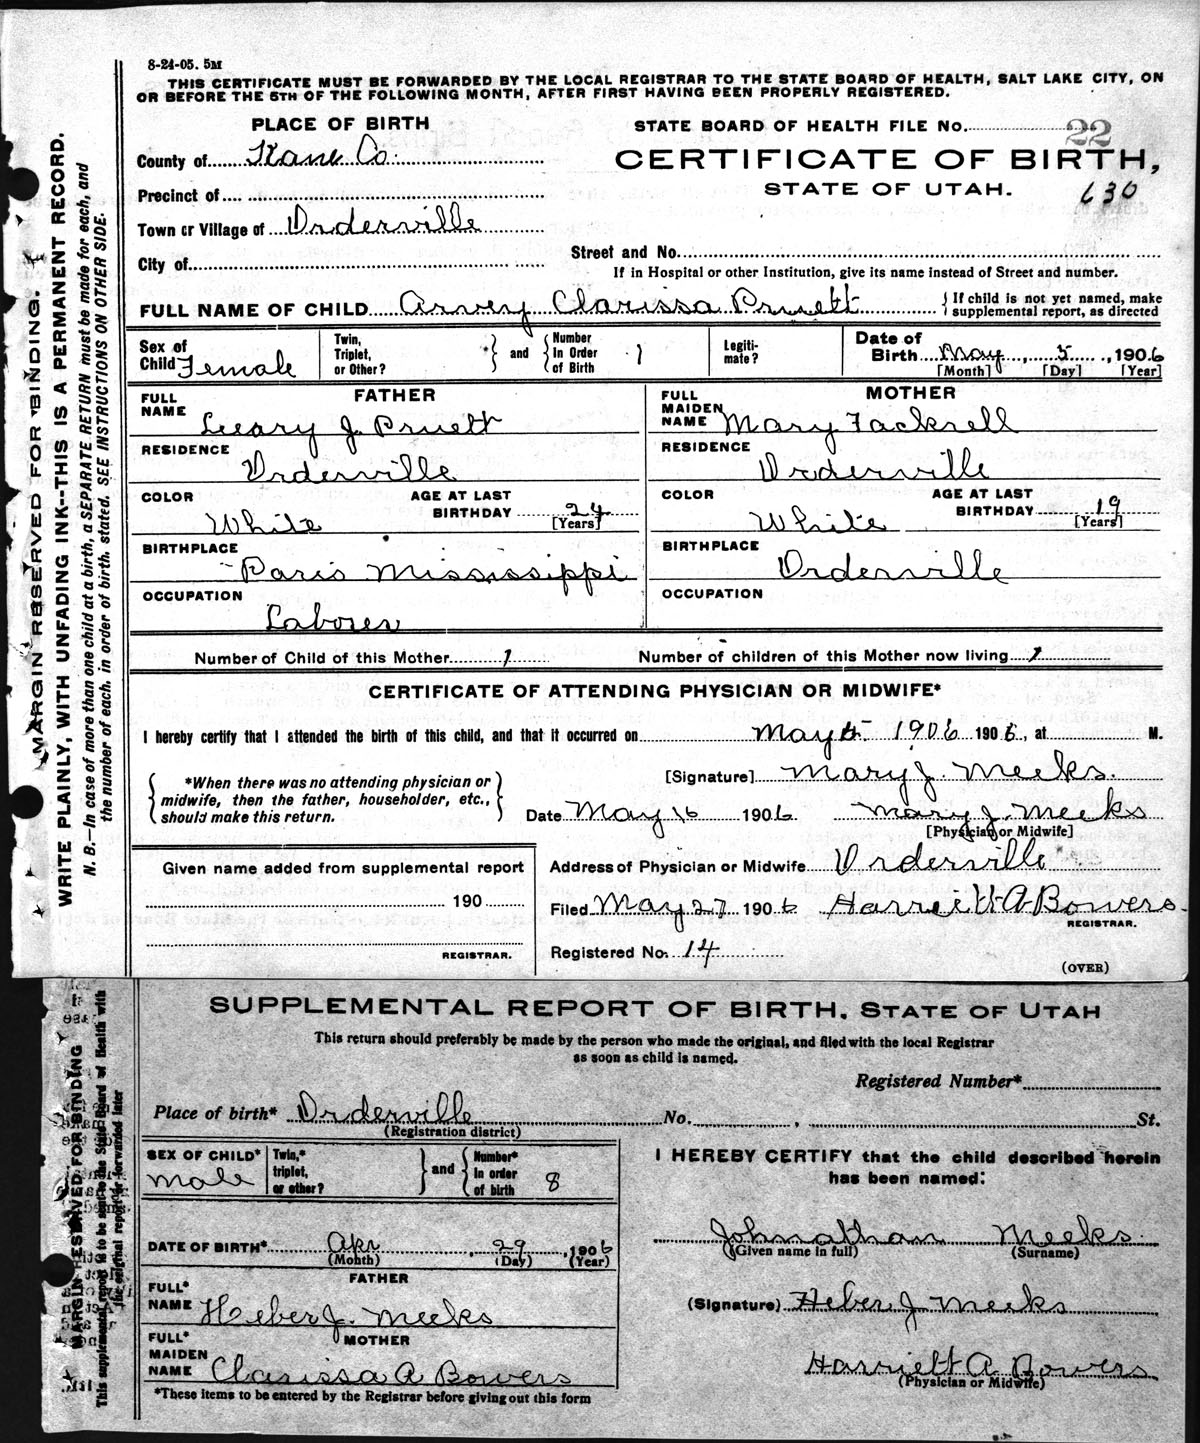 8-24-05. 5M
THIS CERTIFICATE MUST BE FORWARDED BY THE LOCAL REGISTRAR TO THE STATE BOARD OF HEALTH, SALT LAKE CITY, ON
OR BEFORE THE 5TH OF THE FOLLOWING MONTH, AFTER FIRST HAVING BEEN PROPERLY REGISTERED.
MARGIN RESERVED FOR BINDING.
WRITE PLAINLY, WITH UNFADING INK--THIS IS A PERMANENT RECORD.
N. B.—In case of more than one child at a birth, a SEPARATE RETURN must be made for each, and
the number of each, in order of birth, stated. SEE INSTRUCTIONS ON OTHER SIDE.
PLACE OF BIRTH
County of Kane Co.
Precinct of
Town or Village of Orderville
City of
STATE BOARD OF HEALTH FILE No. 22
CERTIFICATE OF BIRTH,
STATE OF UTAH. 630
Street and No.
If in Hospital or other Institution, give its name instead of Street and number.
FULL NAME OF CHILD Arvey Clarissa Pruett { If child is not yet named, make
supplemental report, as directed
Sex of
Child Female
Twin,
Triplet,
or Other?
} and {
Number
In Order
of Birth 1
Legiti-
mate?
Date of
Birth May, 5, 1906
[Month] [Day] [Year]
FATHER
FULL
NAME Leary J. Pruett
RESIDENCE
Orderville
COLOR White
AGE AT LAST
BIRTHDAY 24
[Years]
BIRTHPLACE
Paris Mississippi
OCCUPATION
Laborer
MOTHER
FULL
MAIDEN
NAME Mary Fackrell
RESIDENCE
Orderville
COLOR White
AGE AT LAST
BIRTHDAY 19
[Years]
BIRTHPLACE
Orderville
OCCUPATION
Number of Child of this Mother 1 Number of children of this Mother now living 1
CERTIFICATE OF ATTENDING PHYSICIAN OR MIDWIFE*
I hereby certify that I attended the birth of this child, and that it occurred on May 5 1906 1906, at M.
{ *When there was no attending physician or
midwife, then the father, householder, etc.,
should make this return. }
[Signature] Mary J. Meeks.
Date May 16 1906 Mary J. Meeks
[Physician or Midwife]
Given name added from supplemental report
190
REGISTRAR.
Address of Physician or Midwife Orderville
Filed May 27 1906 Harriett A Bowers
REGISTRAR.
Registered No. 14
(OVER)
MARGIN RESERVED FOR BINDING
This supplemental report is to be sent to the State Board of Health with
the original report or forwarded later
SUPPLEMENTAL REPORT OF BIRTH, STATE OF UTAH
This return should preferably be made by the person who made the original, and filed with the local Registrar
as soon as child is named.
Registered Number*
Place of birth* Orderville No. , St.
(Registration district)
SEX OF CHILD*
male
Twin,*
triplet,
or other?
} and {
Number*
In order
of birth 8
DATE OF BIRTH* Apr, 29, 1906
(Month) (Day) (Year)
FATHER
FULL*
NAME Heber J. Meeks
MOTHER
FULL*
MAIDEN
NAME Clarissa A Bowers
*These items to be entered by the Registrar before giving out this form
I HEREBY CERTIFY that the child described herein
has been named:
Johnathan Meeks.
(Given name in full) (Surname)
(Signature) Heber J Meeks
Harriett A Bowers
(Physician or Midwife)